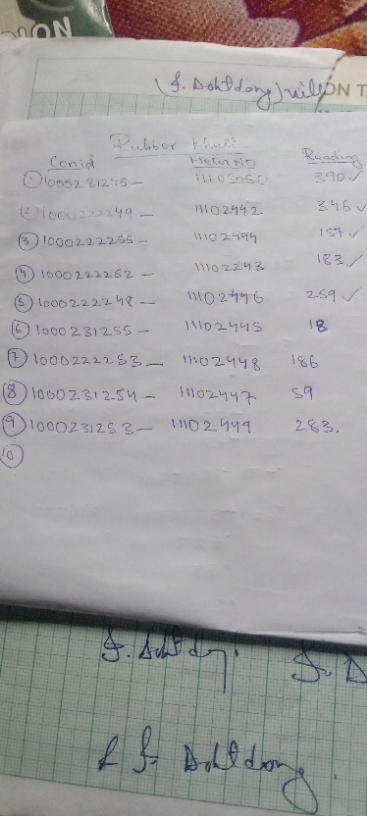 ION
(J. Dohtdong) vill
ON T
Rubber Khuli
Conid Meter NO Reading
① 1000231245 - 11105050 390 ✓
② 1000222249 - 11102442 346 ✓
③ 1000222255 - 11102444 157 ✓
④ 1000222252 - 11102243 183 ✓
⑤ 1000222248 - 11102446 259 ✓
⑥ 1000231255 - 11102445 18
⑦ 1000222253 - 11102448 186
⑧ 1000231254 - 11102447 59
⑨ 1000231253 - 11102449 283.
⑩
J. Dohtdong J. D
J. Dohtdong